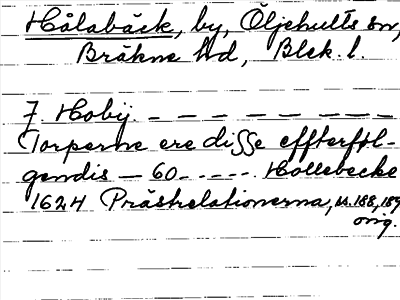 Hålabäck, by, Öljehults sn,
Bräkne hd, Blek. l.
J. Hobij — — — — — — —
Torperne ere disse effterföl-
gendis — 60 - - - - - Hollebecke
1624 Prästrelationerna, s. 188, 189
orig.